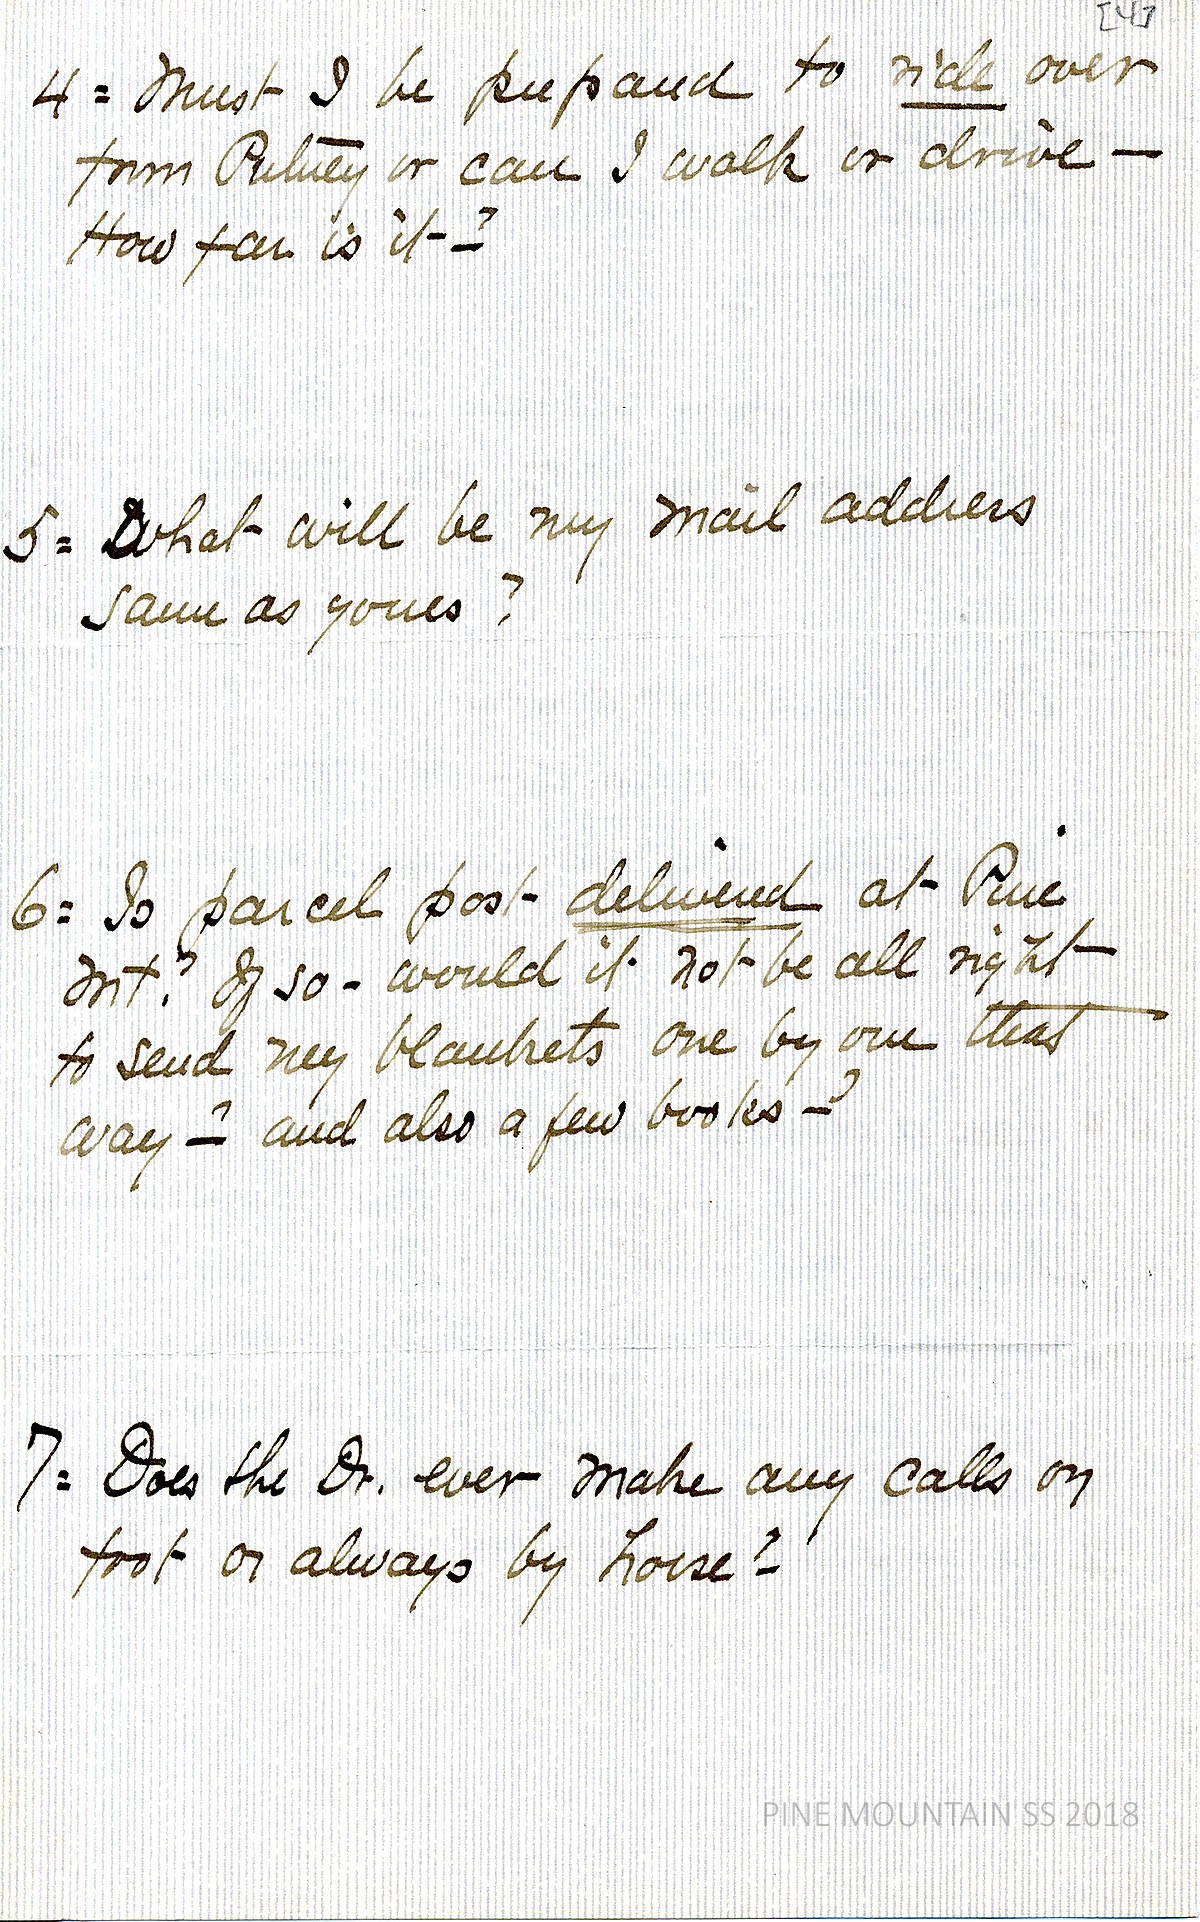 [4]
4 = Must I be prepared to ride over
from Putney or can I walk or drive —
How far is it - ?
5 = What will be my mail address
same as yours ?
6 = Is parcel post delivered at Pine
Mt. ? If so - would it not be all right
to send my blankets one by one that
way - ? and also a few books - ?
7 = Does the Dr. ever make any calls on
foot or always by horse ? -
PINE MOUNTAIN SS 2018